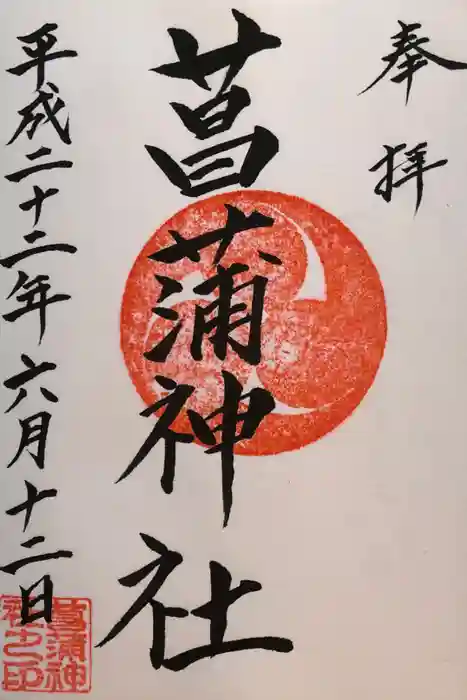 奉拝
菖蒲神社
平成二十二年六月十二日
菖蒲神
社之印